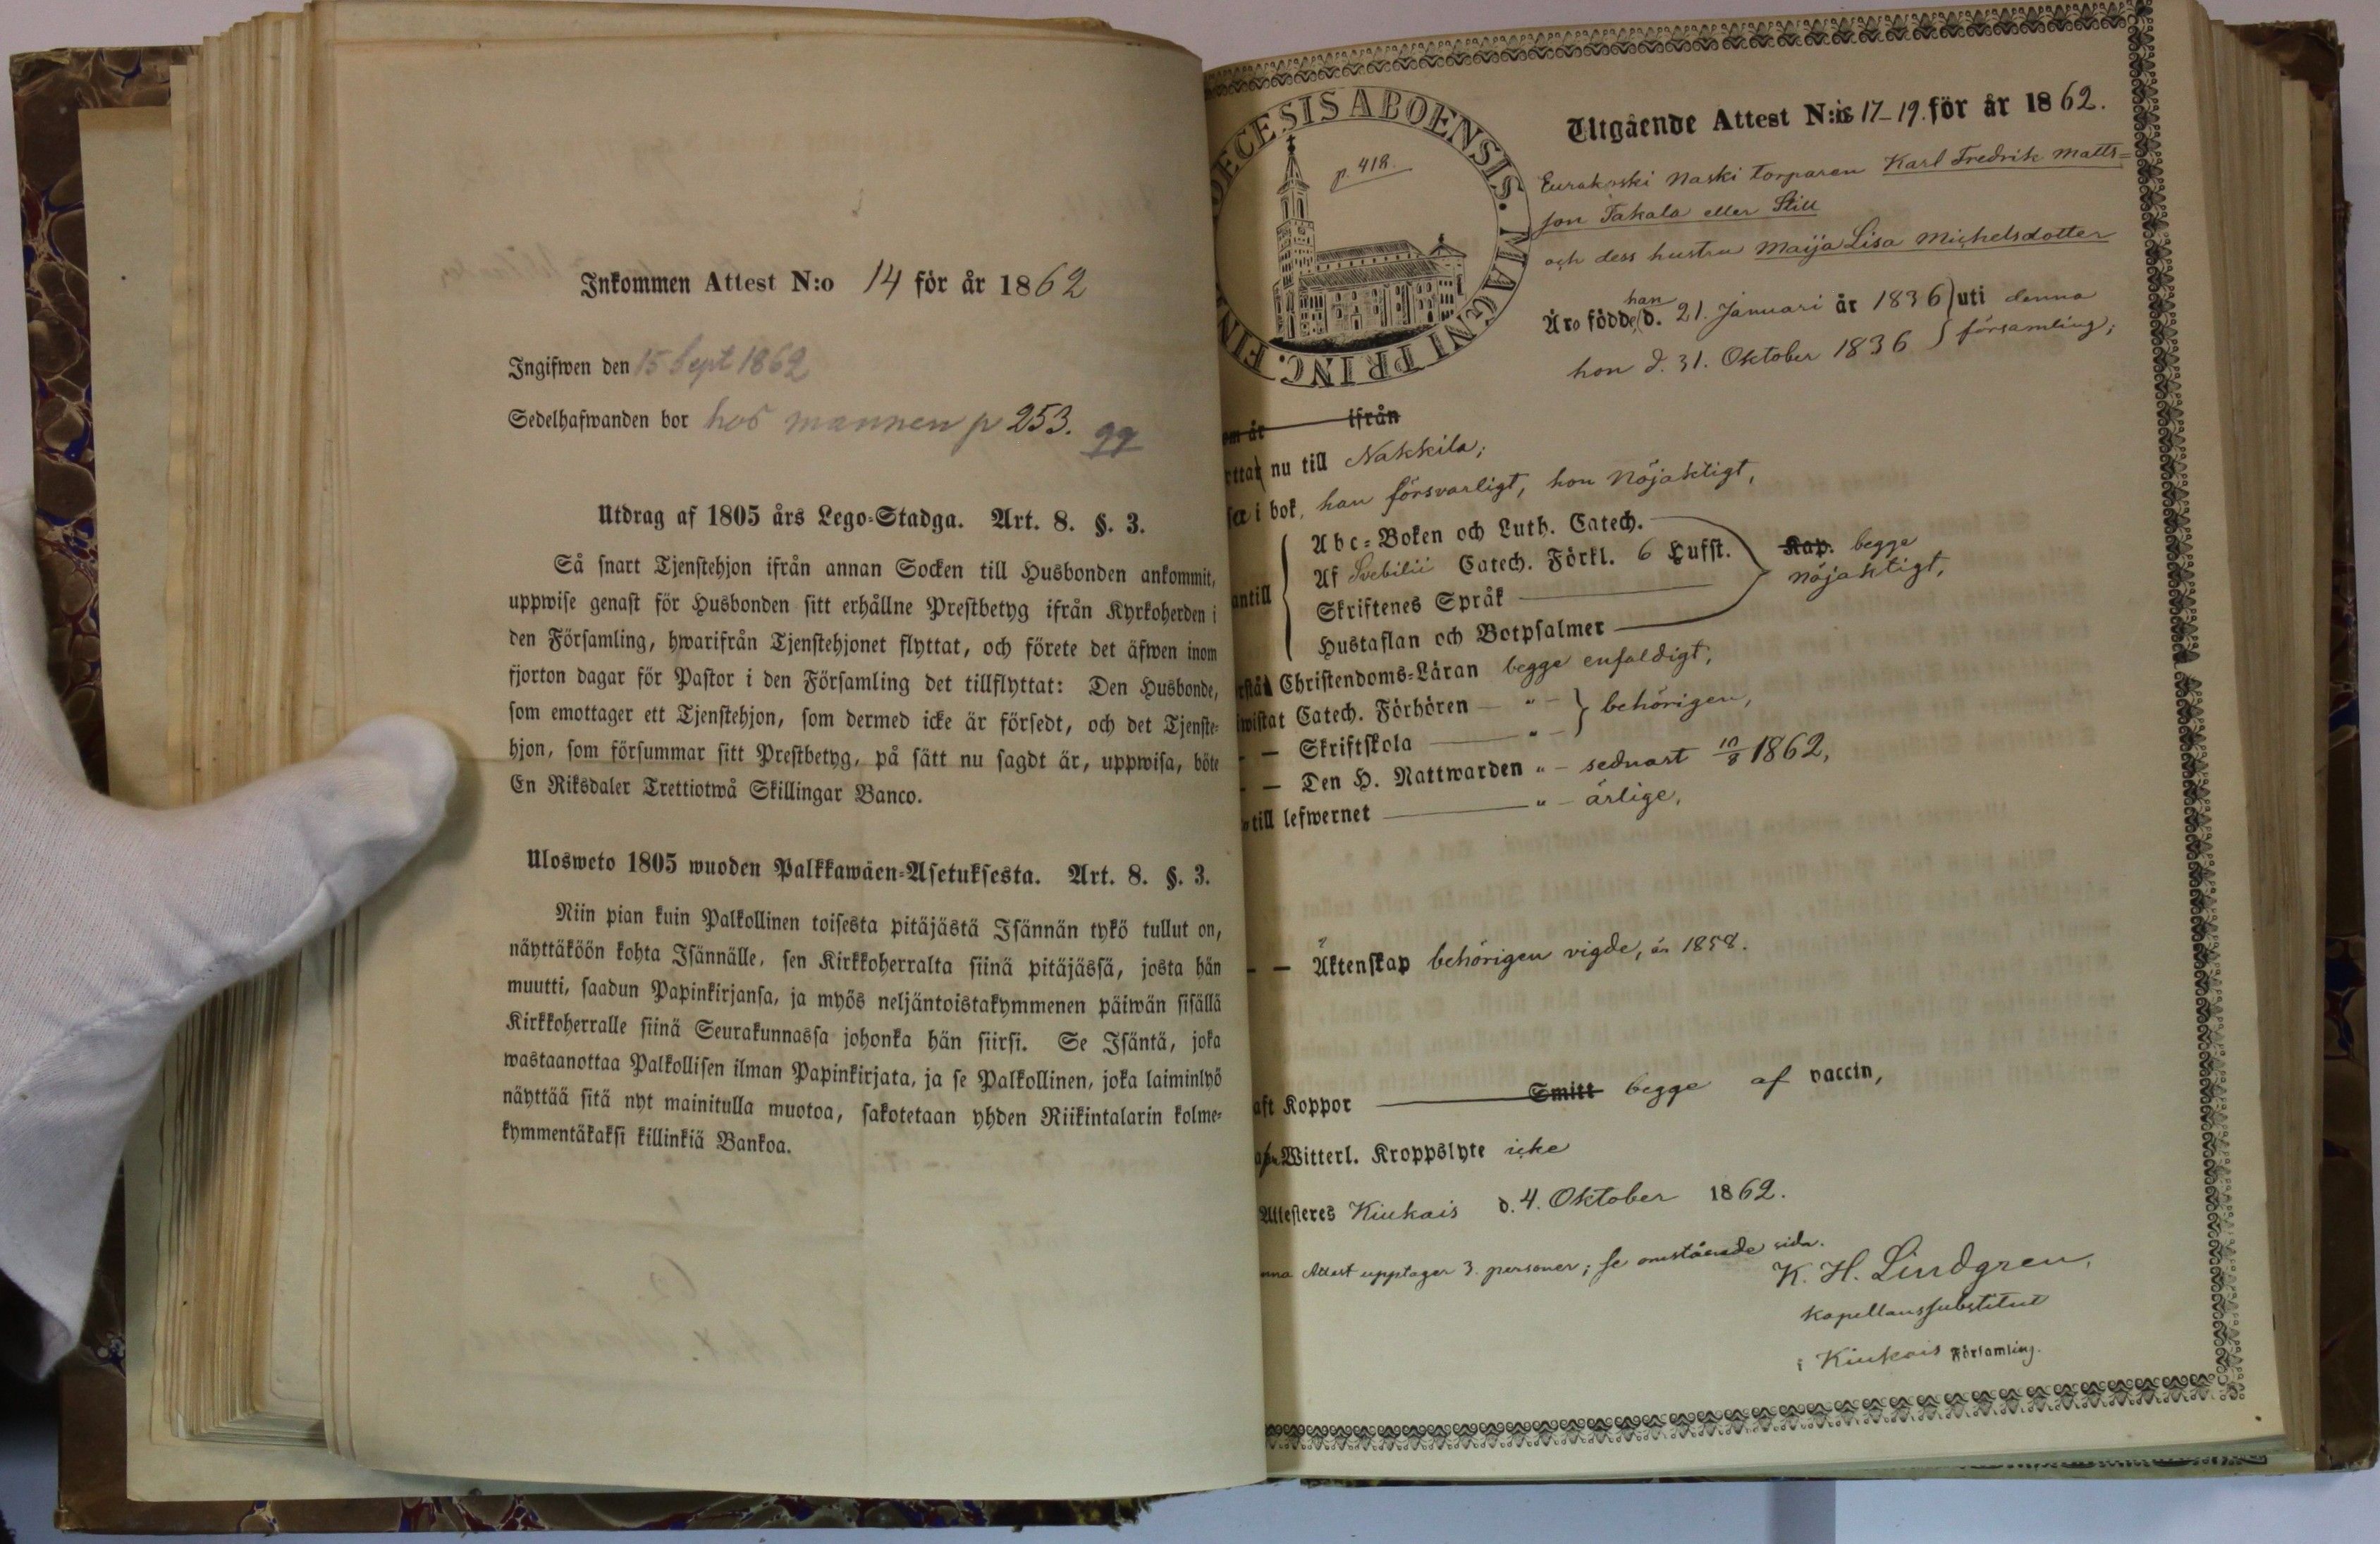 Inkommen Attest N:o 14 för år 1862
Ingifwen den 15 Sept 1862
Sedelhafwanden bor hos mannen p 253.
99
Utdrag af 1805 års Lego-Stadga. Art. 8. §. 3.
Så snart Tjenstehjon ifrån annan Socken till Husbonden ankommit,
uppwise genast för Husbonden sitt erhållne Prestbetyg ifrån Kyrkoherden i
den Församling, hwarifrån Tjenstehjonet flyttat, och förete det äfwen inom
fjorton dagar för Pastor i den Församling det tillflyttat: Den Husbonde,
som emottager ett Tjenstehjon, som dermed icke är försedt, och det Tjenste-
hjon, som försummar sitt Prestbetyg, på sätt nu sagdt är, uppwisa, böte
En Riksdaler Trettiotwå Skillingar Banco.
Ulosweto 1805 wuoden Palkkawäen-Asetuksesta. Art. 8. §. 3.
Niin pian kuin Palkollinen toisesta pitäjästä Isännän tykö tullut on,
näyttäköön kohta Isännälle, sen Kirkkoherralta siinä pitäjässä, josta hän
muutti, saadun Papinkirjansa, ja myös neljäntoistakymmenen päiwän sisällä
Kirkkoherralle siinä Seurakunnassa johonka hän siirsi. Se Isäntä, joka
wastaanottaa Palkollisen ilman Papinkirjata, ja se Palkollinen, joka laiminlyö
näyttää sitä nyt mainitulla muotoa, sakotetaan yhden Riikintalarin kolme-
kymmentäkaksi killinkiä Bankoa.
OECESIS ABOENSIS. MAGNI PRINC. FIN
p. 418.
Utgående Attest N:is 17-19. för år 1862.
Eurakoski Naski torparen Karl Fredrik Matts=
son Takala eller Still
och dess hustru Maija Lisa Michelsdotter
Äro födde, han d. 21. Januari år 1836 } uti denna
hon d. 31. Oktober 1836 } församling;
om är ifrån
ttat nu till Nakkila;
i bok, han försvarligt, hon nöjaktigt,
antill
Abc-Boken och Luth. Catech.
Af Svebilii Catech. Förkl. 6 Hufst.
Skriftenes Språk
Hustaflan och Botpsalmer
Kap. begge
nöjaktigt,
Christendoms-Läran begge enfaldigt,
wistat Catech. Förhören — " — } behörigen,
— Skriftskola — " —
— Den H. Nattwarden " — sednast 10/8 1862,
till lefwernet — " — ärlige,
— — Äktenskap behörigen vigde, år 1858.
aft Koppor — Smitt begge af vaccin,
Witterl. Kroppslyte icke
Attesteres Kiukais d. 4. Oktober 1862.
nna Attest upptager 3. personer; se omstående sida.
K. H. Lindgren,
kapellanssubstitut
i Kiukais Församling.